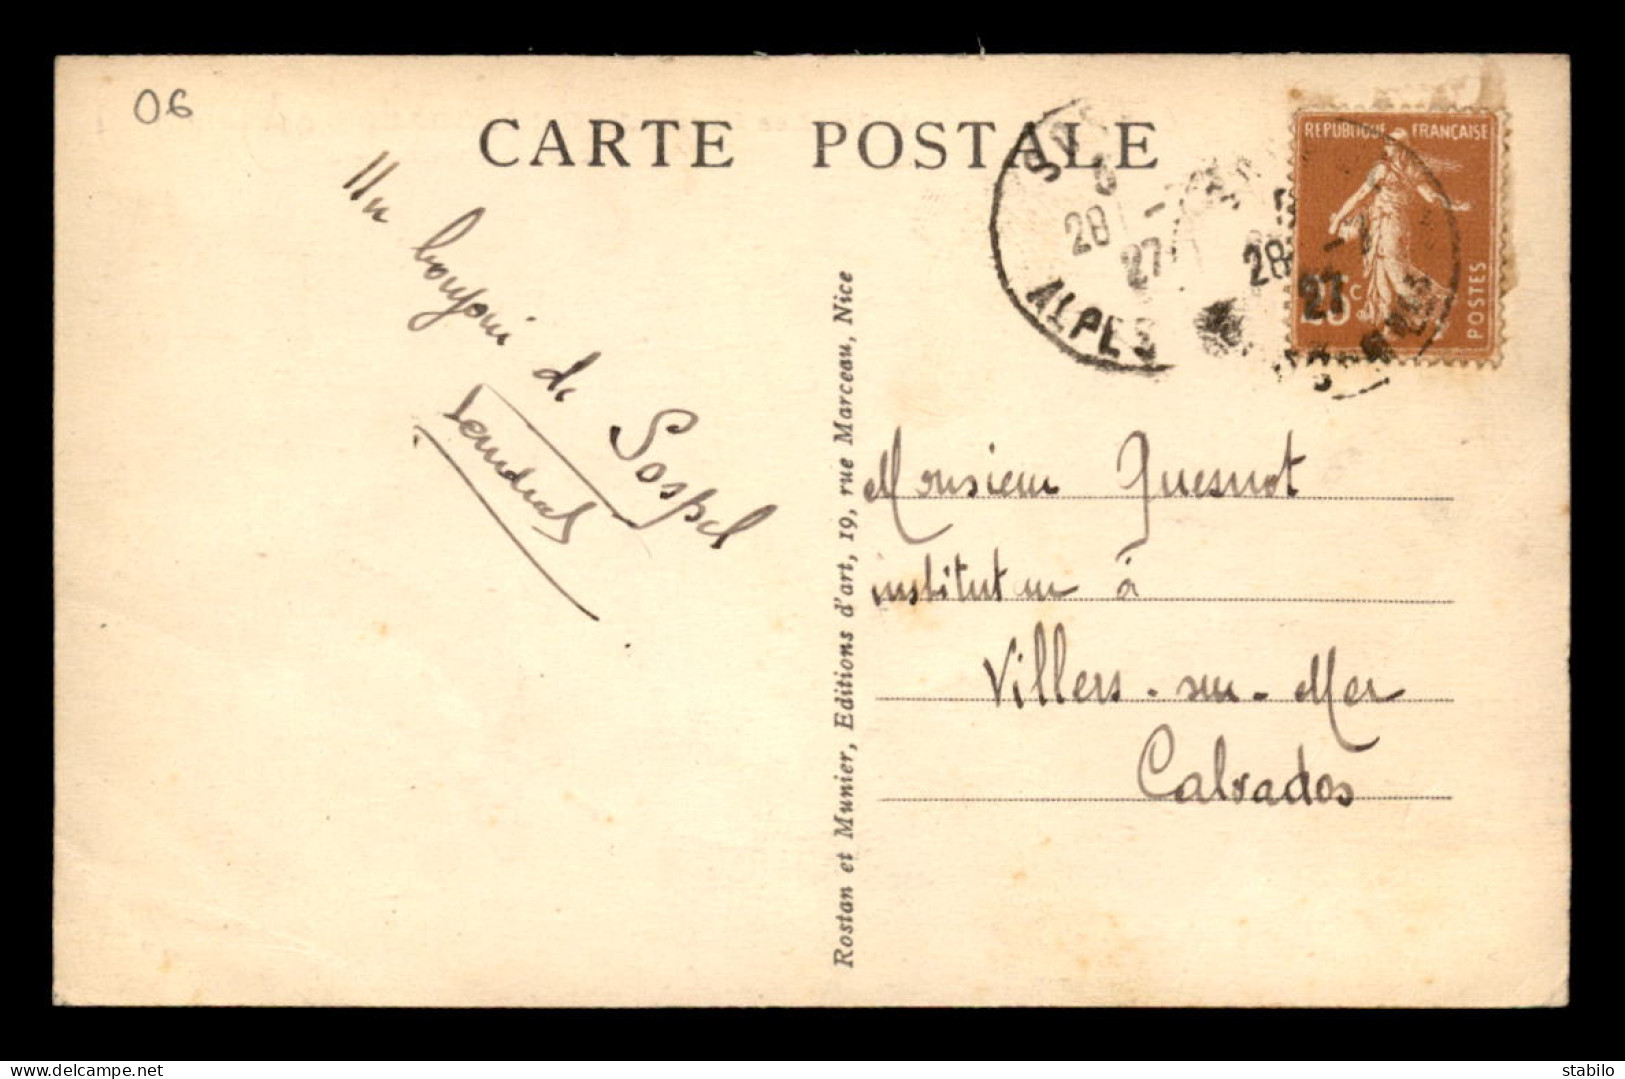 06
CARTE POSTALE
RÉPUBLIQUE FRANÇAISE
POSTES
28
27
ALPES
28 -7
27
Un bonjour de Sospel
Rostan et Munier, Editions d'art, 19, rue Marceau, Nice
Monsieur Quesnot
instituteur à
Villers-sur-Mer
Calvados
stabilo
Delcampe.net